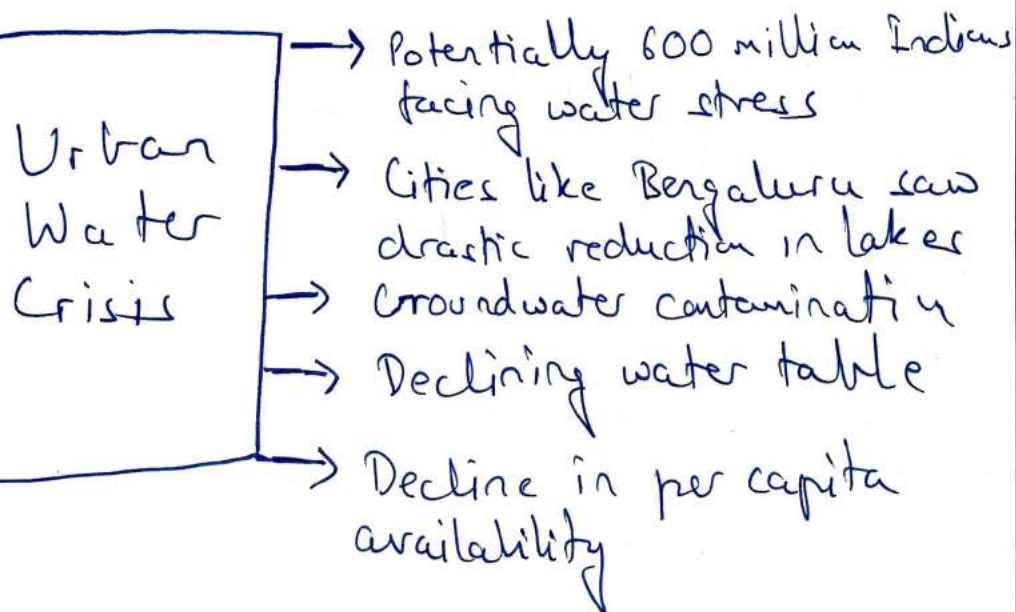 Urban
Water
Crisis
→ Potentially 600 million Indians
facing water stress
→ Cities like Bengaluru saw
drastic reduction in lakes
→ Groundwater contamination
→ Declining water table
→ Decline in per capita
availability